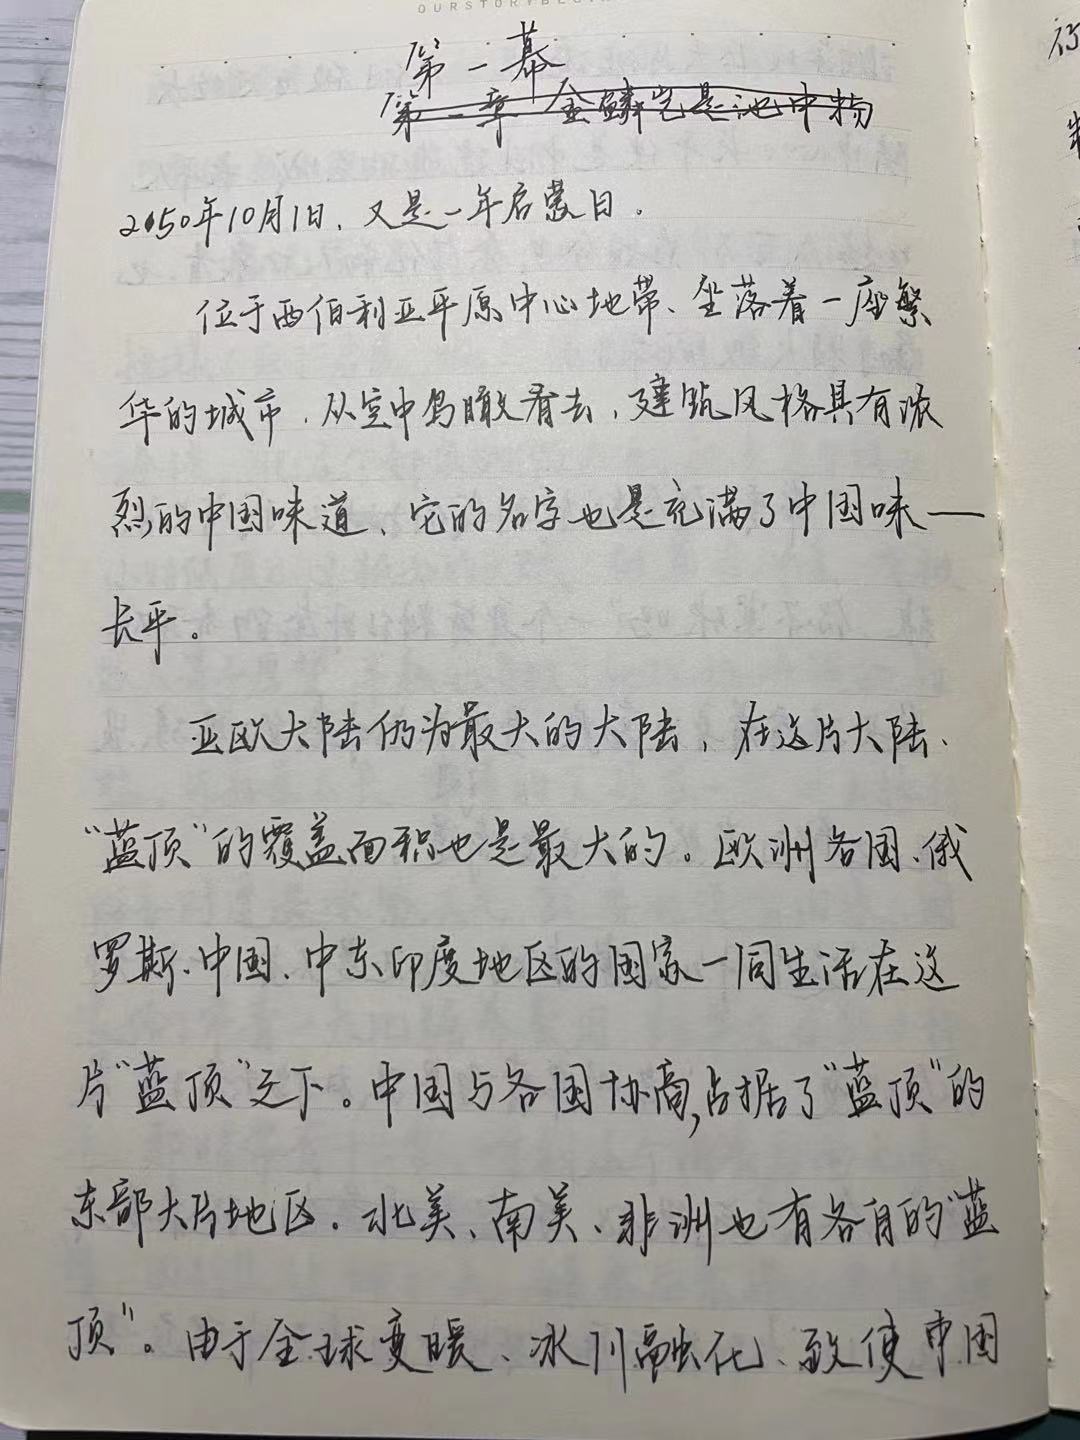 OURSTORYBEGIN
第一幕
第一章 金鳞岂是池中物
2050年10月1日，又是一年启蒙日。
位于西伯利亚平原中心地带、坐落着一座繁
华的城市，从空中鸟瞰看去，建筑风格具有浓
烈的中国味道、它的名字也是充满了中国味——
长平。
亚欧大陆仍为最大的大陆，在这片大陆、
“蓝顶”的覆盖面积也是最大的。欧洲各国、俄
罗斯、中国、中东印度地区的国家一同生活在这
片“蓝顶”之下。中国与各国协商，占据了“蓝顶”的
东部大片地区。北美、南美、非洲也有各自的“蓝
顶”。由于全球变暖、冰川融化、致使中国